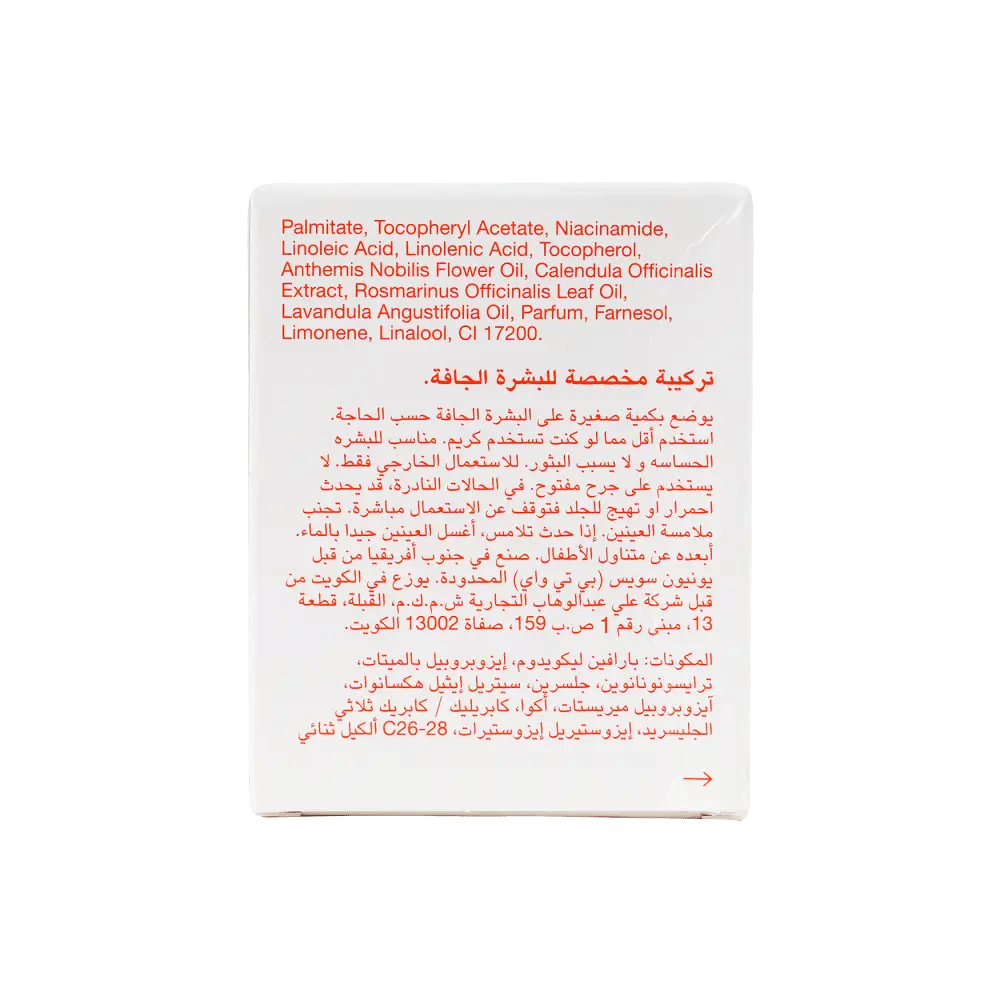 Palmitate, Tocopheryl Acetate, Niacinamide,
Linoleic Acid, Linolenic Acid, Tocopherol,
Anthemis Nobilis Flower Oil, Calendula Officinalis
Extract, Rosmarinus Officinalis Leaf Oil,
Lavandula Angustifolia Oil, Parfum, Farnesol,
Limonene, Linalool, CI 17200.
تركيبة مخصصة للبشرة الجافة.
يوضع بكمية صغيرة على البشرة الجافة حسب الحاجة.
استخدم أقل مما لو كنت تستخدم كريم. مناسب للبشره
الحساسه و لا يسبب البثور. للاستعمال الخارجي فقط. لا
يستخدم على جرح مفتوح. في الحالات النادرة، قد يحدث
احمرار او تهيج للجلد فتوقف عن الاستعمال مباشرة. تجنب
ملامسة العينين. إذا حدث تلامس، أغسل العينين جيدا بالماء.
أبعده عن متناول الأطفال. صنع في جنوب أفريقيا من قبل
يونيون سويس (بي تي واي) المحدودة. يوزع في الكويت من
قبل شركة علي عبدالوهاب التجارية ش.م.ك.م، القبلة، قطعة
13، مبنى رقم 1 ص.ب 159، صفاة 13002 الكويت.
المكونات: بارافين ليكويدوم، إيزوبروبيل بالميتات،
ترايسونونانوين، جلسرين، سيتريل إيثيل هكسانوات،
آيزوبروبيل ميريستات، أكوا، كابريليك / كابريك ثلاثي
الجليسريد، إيزوستيريل إيزوستيرات، C26-28 ألكيل ثنائي
→